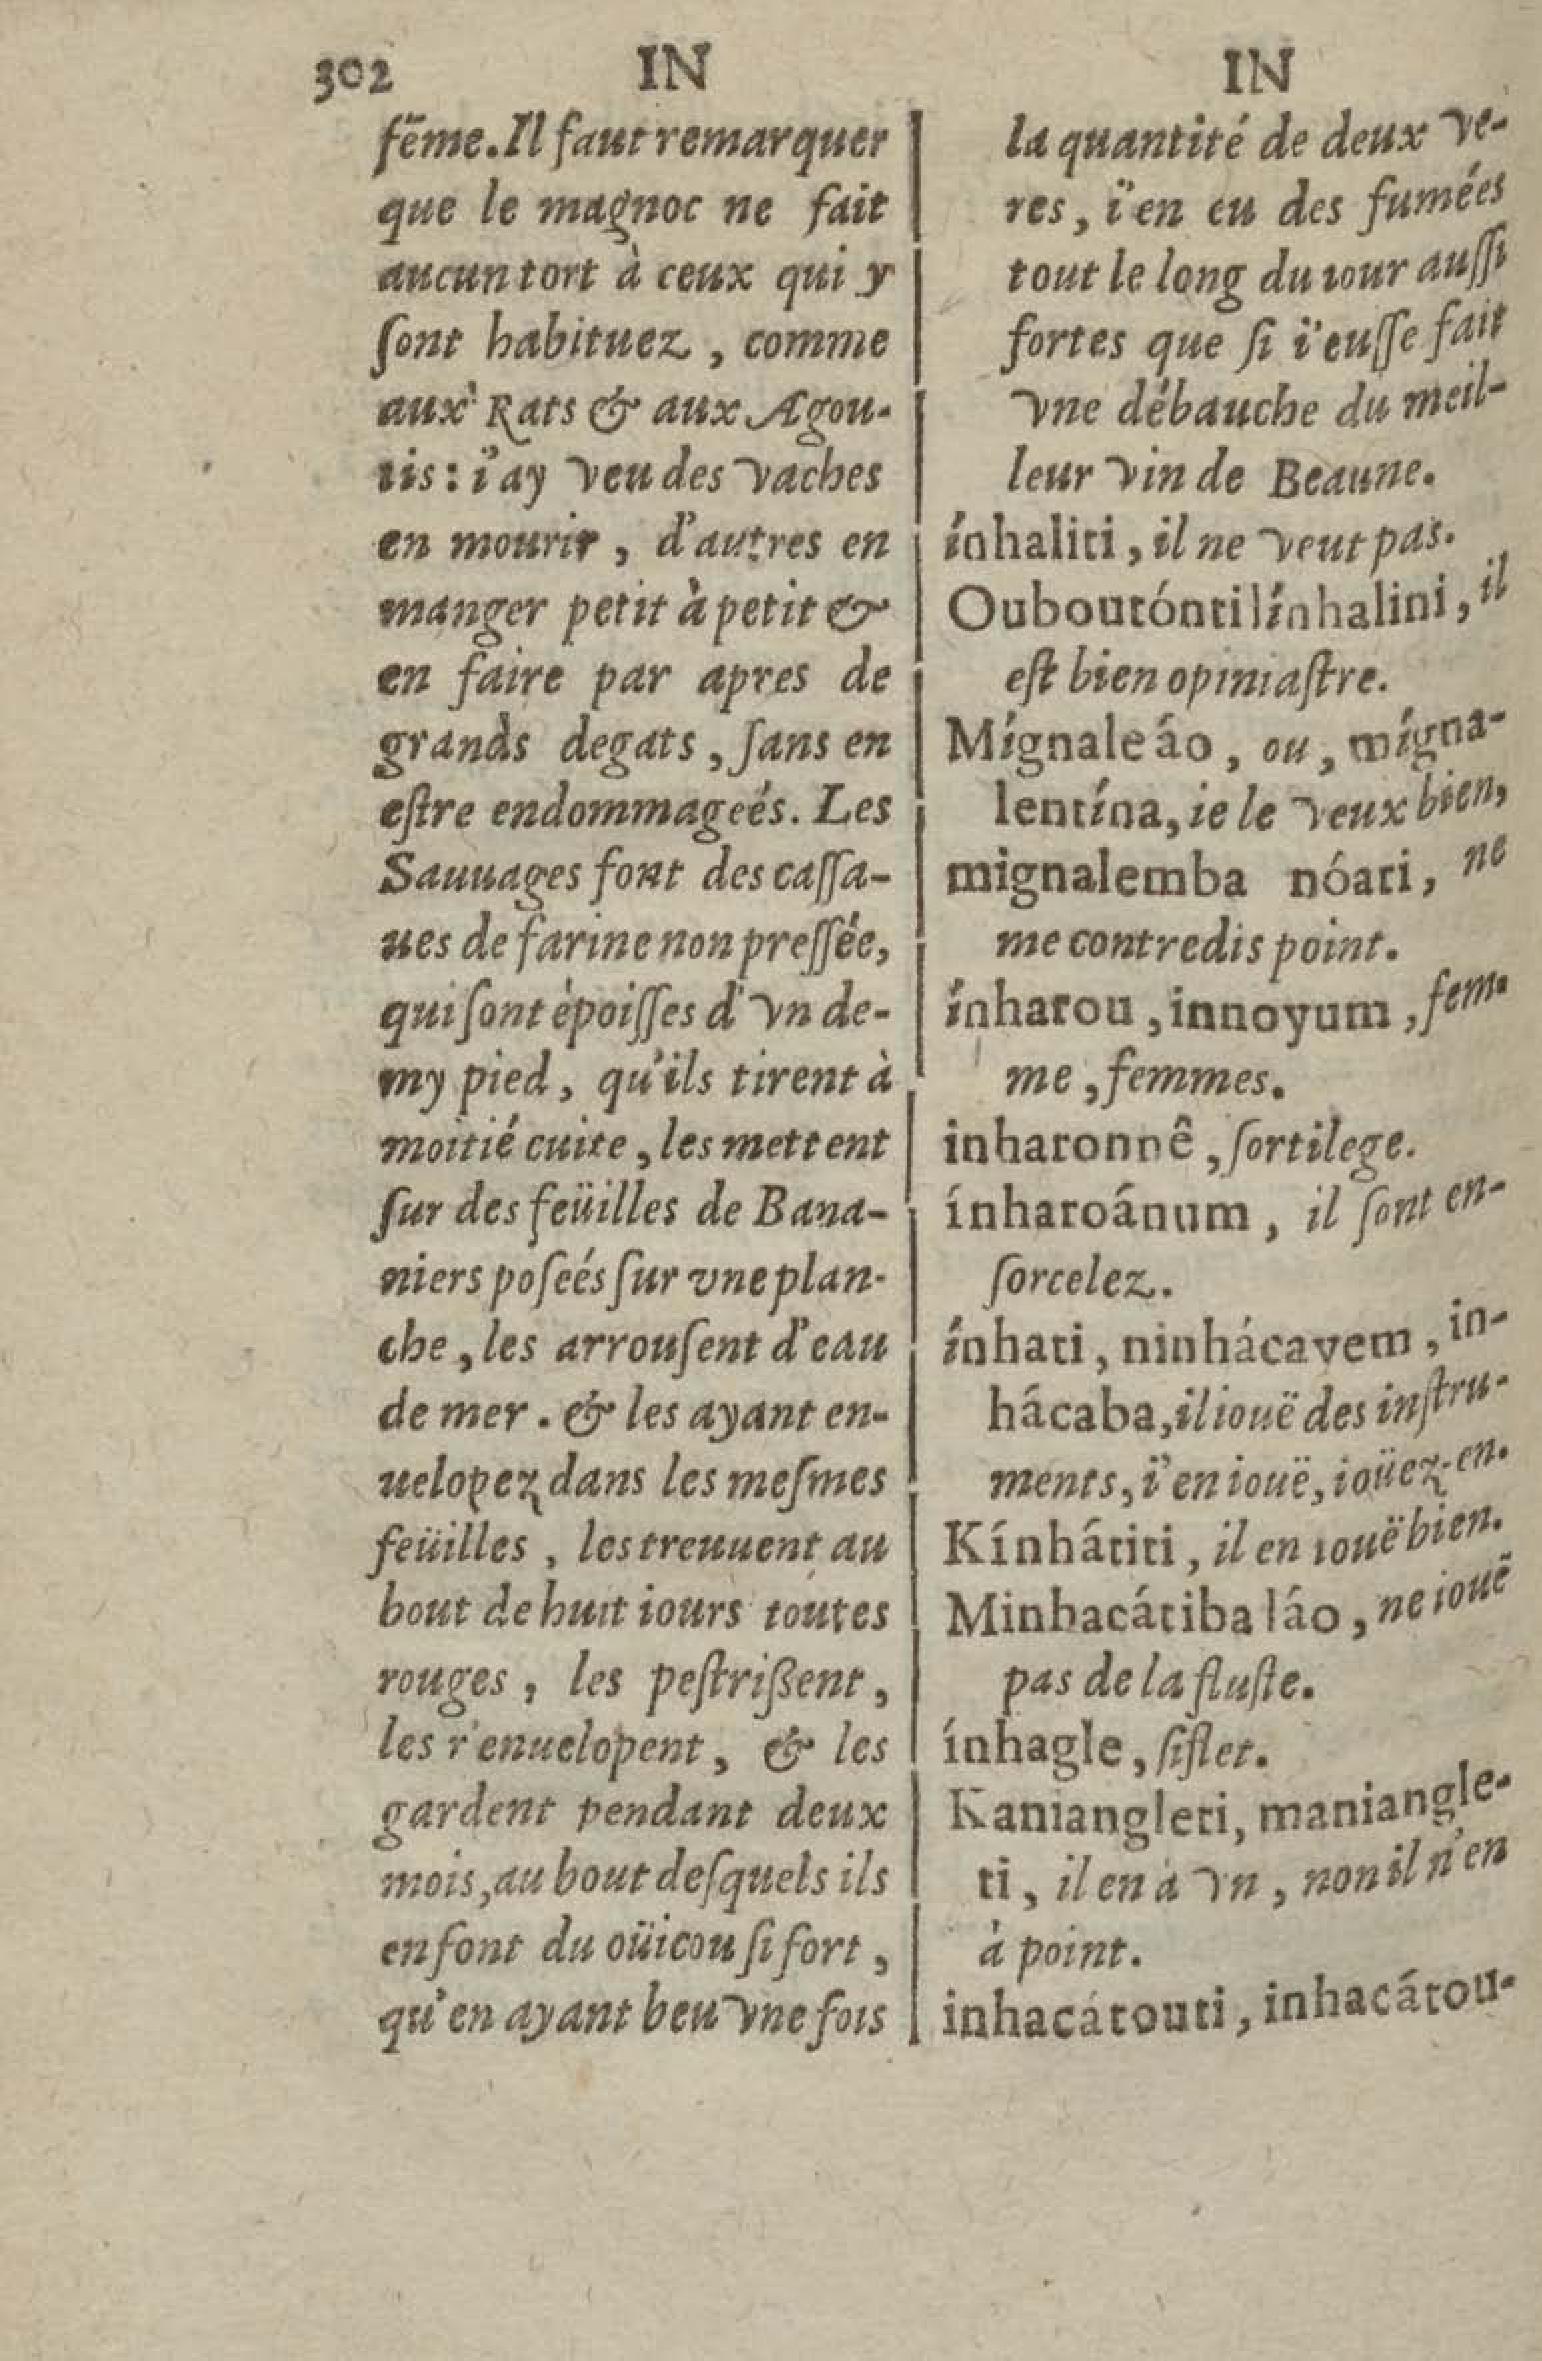 302 IN IN
fẽme. Il faut remarquer
que le magnoc ne fait
aucun tort à ceux qui y
ſont habituez, comme
aux Rats & aux Agou-
tis : i'ay veu des vaches
en mourir, d'autres en
manger petit à petit &
en faire par apres de
grands degats, ſans en
eſtre endommageés. Les
Sauuages font des caſſa-
ues de farine non preſſée,
qui ſont èpoiſſes d'vn de-
my pied, qu'ils tirent à
moitié cuite, les mettent
ſur des feüilles de Bana-
niers poſeés ſur vne plan-
che, les arrouſent d'eau
de mer. & les ayant en-
uelopez dans les meſmes
feüilles, les treuuent au
bout de huit iours toutes
rouges, les peſtrißent,
les r'enuelopent, & les
gardent pendant deux
mois, au bout deſquels ils
en font du oüicou ſi fort,
qu'en ayant beu vne fois
la quantité de deux ve-
res, i'en eu des fumées
tout le long du iour auſſi
fortes que ſi i'euſſe fait
vne débauche du meil-
leur vin de Beaune.
ínhaliti, il ne veut pas.
Ouboutónti línhalini, il
eſt bien opiniaſtre.
Mígnale áo, ou, mígna-
lentína, ie le veux bien,
mignalemba nóati, ne
me contredis point.
ínharou, innoyum, fem-
me, femmes.
inharonnê, ſortilege.
ínharoánum, il ſont en-
ſorcelez.
ínhati, ninhácayem, in-
hácaba, il iouë des inſtru-
ments, i'en iouë, ioüez-en.
Kínhátiti, il en iouë bien.
Minhacátiba láo, ne iouë
pas de la fluſte.
ínhagle, ſiflet.
Kaniangleti, maniangle-
ti, il en à vn, non il n'en
à point.
inhacátouti, inhacátou-